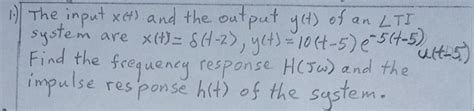 1) The input x(t) and the output y(t) of an LTI
system are x(t)= δ(t-2), y(t)=10(t-5)e^-5(t-5) u(t-5).
Find the frequency response H(Jω) and the
impulse response h(t) of the system.